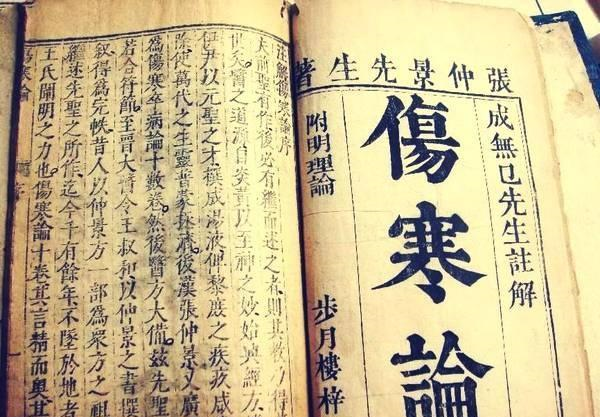 張仲景先生著
成無已先生註解
傷寒論
附明理論
步月樓梓
注解傷寒論序
夫前聖有作後必有繼而述之者則其教乃得
世矣醫之道源自炎黃以至神之妙始興經方
伊尹以元聖之才撰成湯液俾黎庶之疾疢咸
除使萬代之生靈普蒙拯濟後漢張仲景又廣
為傷寒卒病論十數卷然後醫方大備茲先聖
若合符節至晉大醫令王叔和以仲景之書撰
叙得為完帙昔人以仲景方一部為眾方之祖
繼述先聖之所作迄今千有餘年不墜於地者
王氏闡明之力也傷寒論十卷其言精而奧其
傷寒論 序